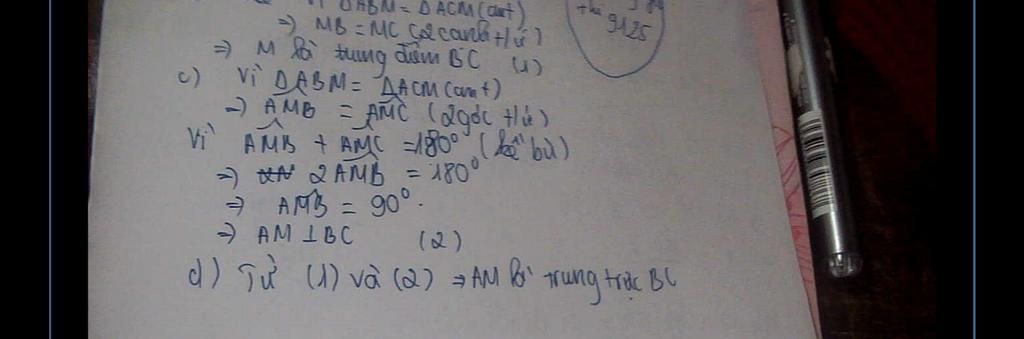 Vì ΔABM = ΔACM (cmt)
⇒ MB = MC (2 cạnh t/ứ)
⇒ M là trung điểm BC (1)
c) Vì ΔABM = ΔACM (cmt)
⇒ AMB = AMC (2 góc t/ứ)
Vì AMB + AMC = 180° (kề bù)
⇒ 2AMB = 180°
⇒ AMB = 90°.
⇒ AM ⊥ BC (2)
d) Từ (1) và (2) ⇒ AM là trung trực BC
9125